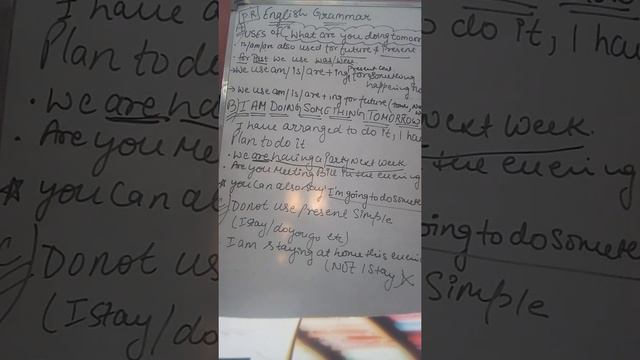 P.R English Grammar
USES of What are you doing tomorro
is/am/are also used for future & Present
for Past we use was/were
we use am/is/are + ing for something
Present con
happening
we use am/is/are + ing for future
B) I AM DOING SOMETHING TOMORROW
I have arranged to do it, I ha
Plan to do it
We are having a Party Next week
Are you Meeting Bill in the evening
you can also say I'm going to do some
Do not use Present Simple
(I stay/do you go etc)
I am staying at home this eveni
(NOT I stay) X